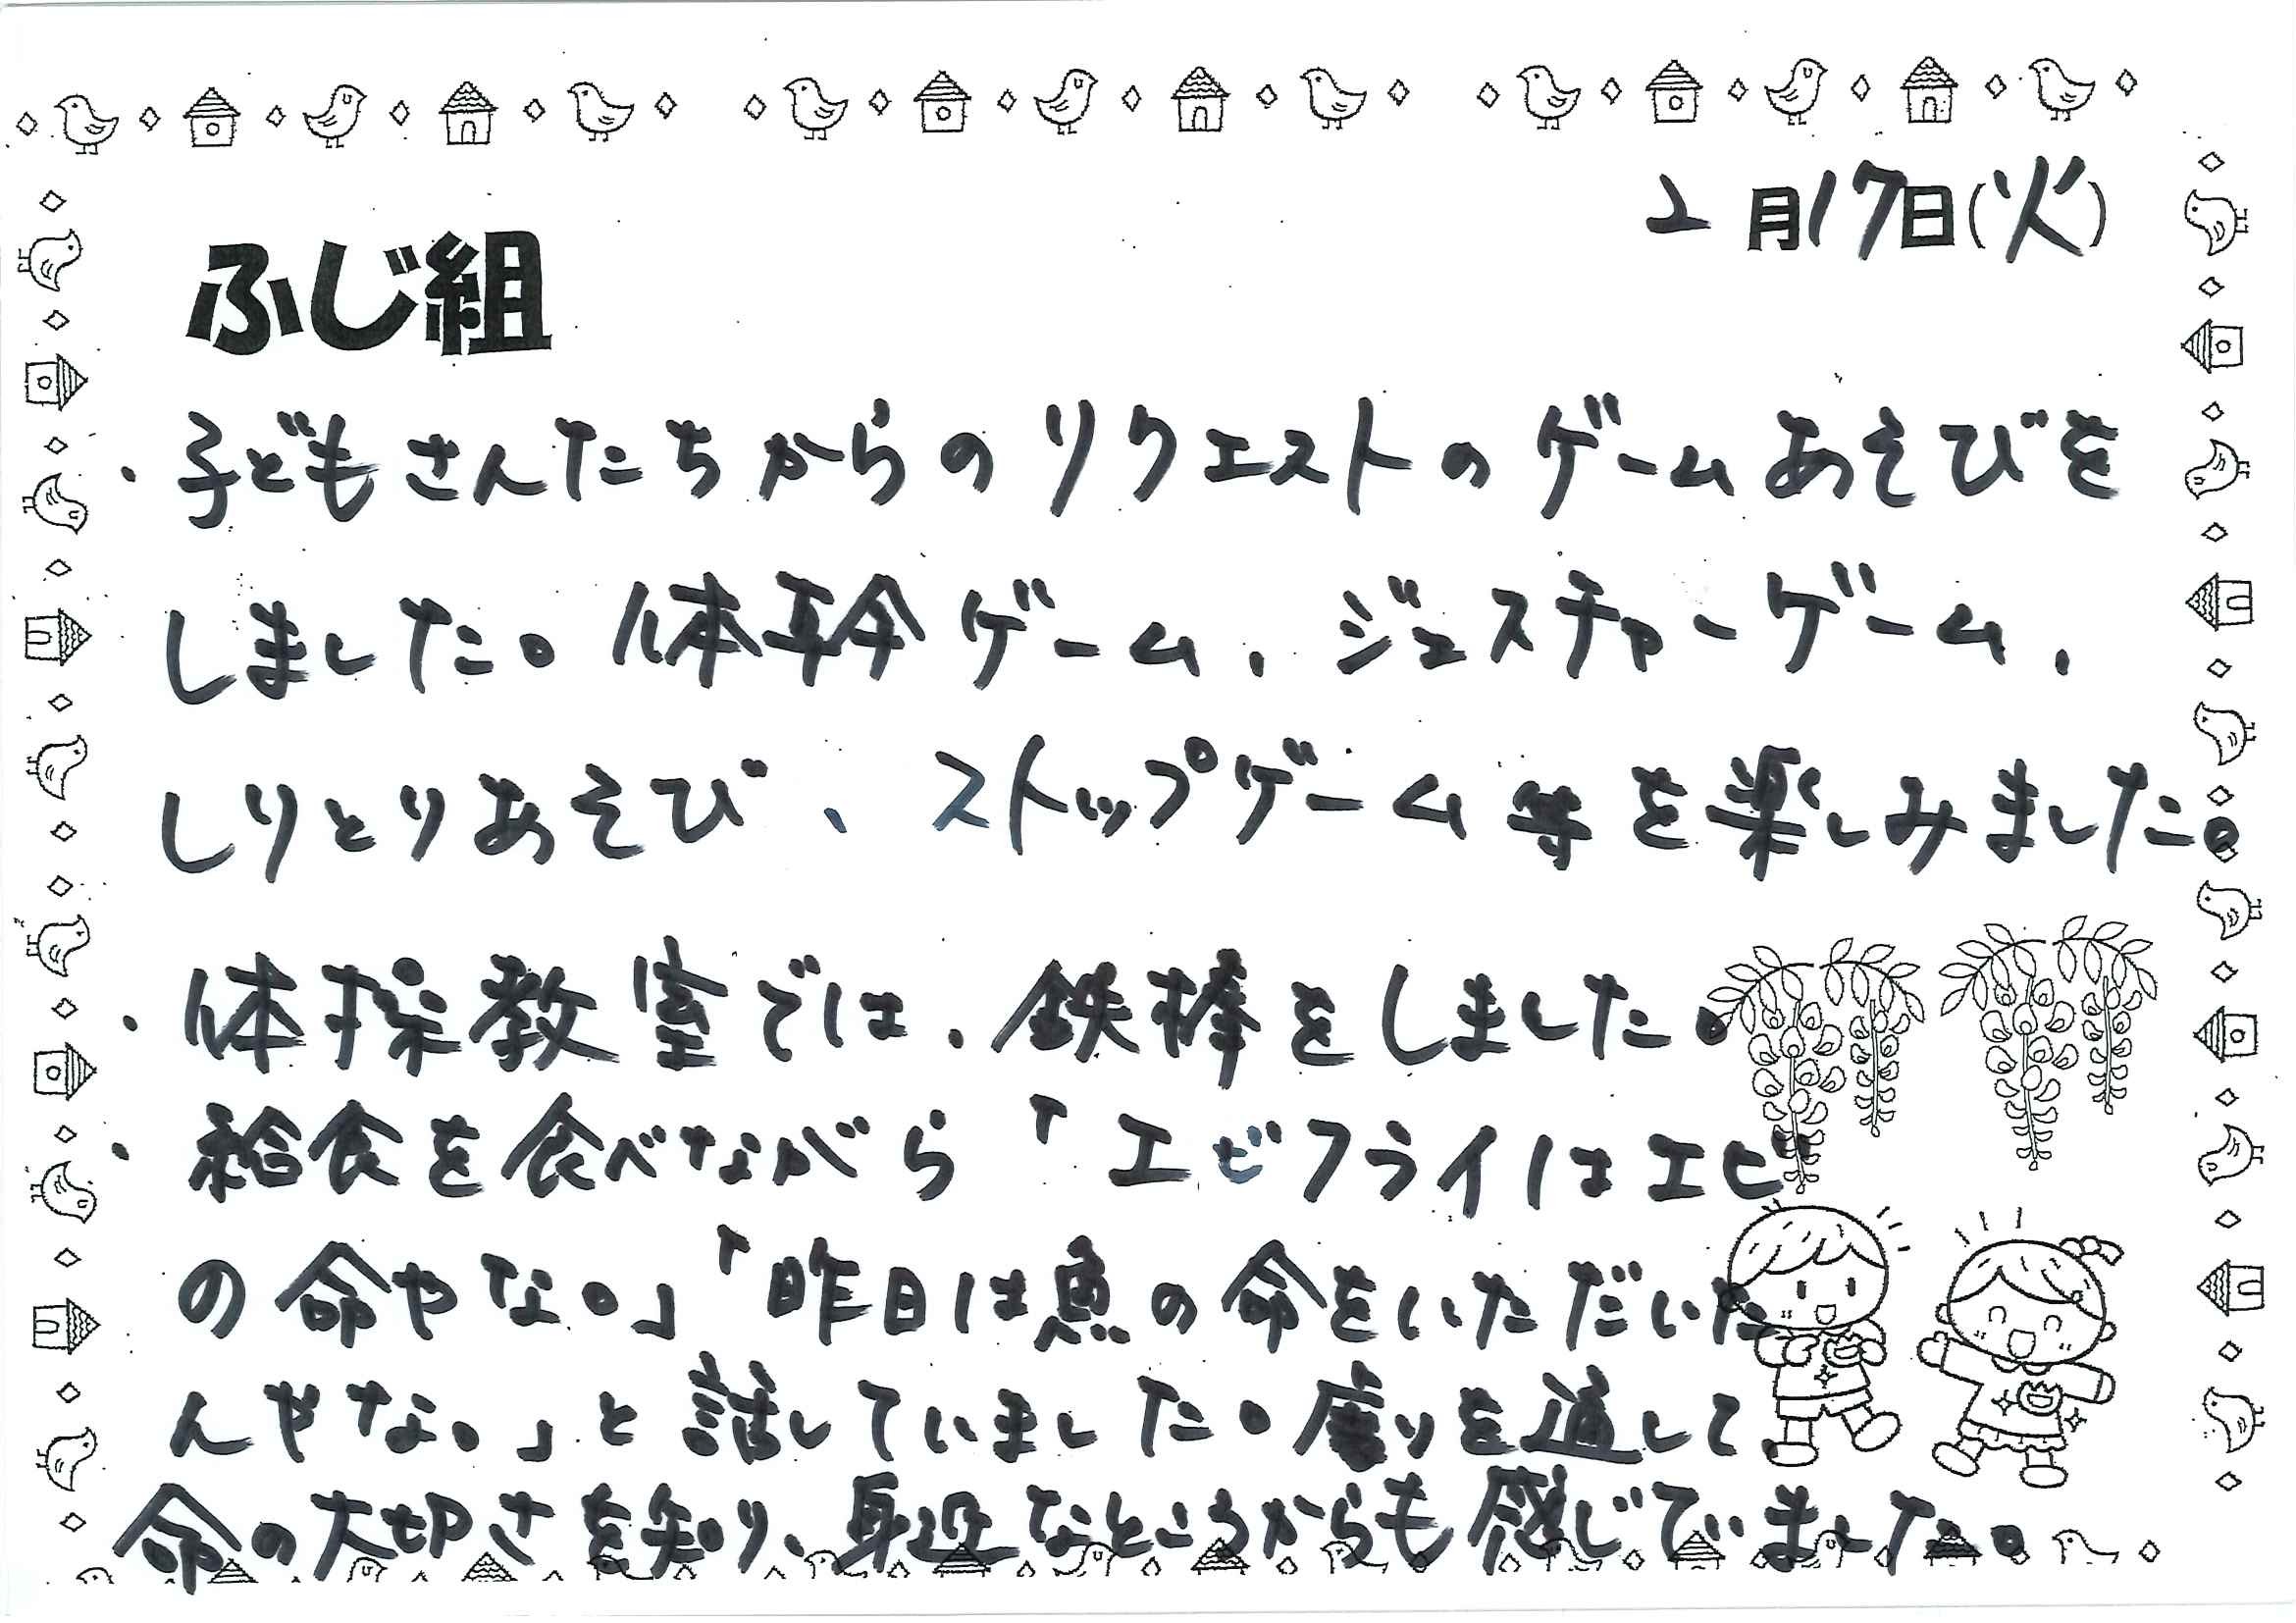 2月17日(火)
ふじ組
・子どもさんたちからのリクエストのゲームあそびを
しました。体幹ゲーム、ジェスチャーゲーム、
しりとりあそび、ストップゲーム等を楽しみました。
・体操教室では、鉄棒をしました。
・給食を食べながら「エビフライはエビ
の命やな。」「昨日は魚の命をいただいた
んやな。」と話していました。を通して
命の大切さを知り、身近なところからも感じていました。